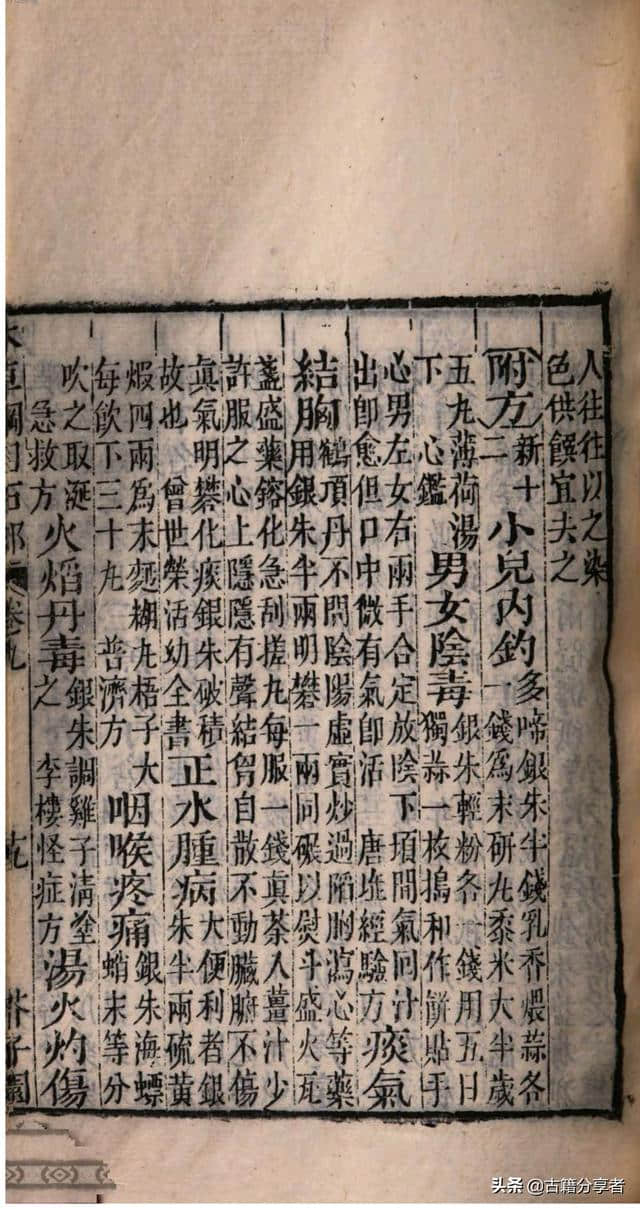 人往往以之染
色供饌宜去之
附方 新十二 小兒內釣 多啼銀朱半錢乳香煨蒜各
一錢爲末研丸黍米大半歲
五丸薄荷湯
下 心鑑 男女陰毒 銀朱輕粉各一錢用五日
獨蒜一枚搗和作餅貼手
心男左女右兩手合定放陰下頃間氣回汗
出卽愈但口中微有氣卽活 唐瑤經驗方 痰氣
結胸 鶴頂丹不問陰陽虛實炒過陷胸瀉心等藥
用銀朱半兩明礬一兩同碾以熨斗盛火瓦
盞盛藥鎔化急刮搓丸每服一錢真茶入薑汁少
許服之心上隱隱有聲結胷自散不動臟腑不傷
眞氣明礬化痰銀朱破積
故也 曾世榮活幼全書 正水腫病 大便利者銀
朱半兩硫黃
煆四兩爲末麪糊丸梧子大
每飲下三十丸 普濟方 咽喉疼痛 銀朱海螵
蛸末等分
吹之取涎
急救方 火焰丹毒 銀朱調雞子淸塗
之 李樓怪症方 湯火灼傷
本草綱目石部 卷九 芥子園
头条 @古籍分享者